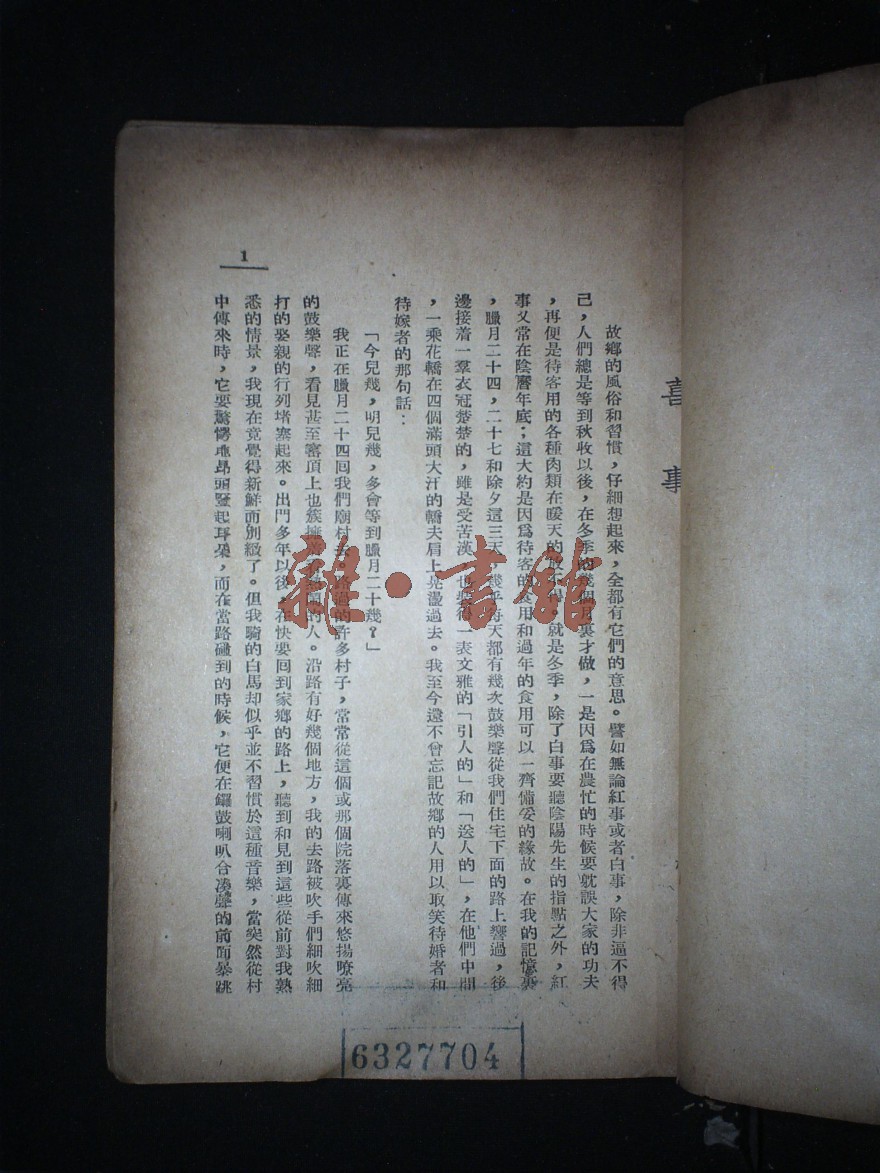 喜事
故鄉的風俗和習慣，仔細想起來，全都有它們的意思。譬如無論紅事或者白事，除非逼不得
己，人們總是等到秋收以後，在冬季的幾個月裏才做，一是因爲在農忙的時候要躭誤大家的功夫
，再便是待客用的各種肉類在暖天的放不得。就是冬季，除了白事要聽陰陽先生的指點之外，紅
事又常在陰曆年底；這大約是因爲待客的食用和過年的食用可以一齊備妥的緣故。在我的記憶裏
，臘月二十四，二十七和除夕這三天，幾乎每天都有幾次鼓樂聲從我們住宅下面的路上響過，後
邊接着一羣衣冠楚楚的，雖是受苦漢，也裝得一表文雅的「引人的」和「送人的」，在他們中間
，一乘花轎在四個滿頭大汗的轎夫肩上晃盪過去。我至今還不曾忘記故鄉的人用以取笑待婚者和
待嫁者的那句話：
「今兒幾，明兒幾，多會等到臘月二十幾？」
我正在臘月二十四回我們廟村去。路過的許多村子，常常從這個或那個院落裏傳來悠揚嘹亮
的鼓樂聲，看見甚至窰頂上也簇擁着看熱鬧的人。沿路有好幾個地方，我的去路被吹手們細吹細
打的娶親的行列堵塞起來。出門多年以後，在快要回到家鄉的路上，聽到和見到這些從前對我熟
悉的情景，我現在竟覺得新鮮而別緻了。但我騎的白馬却似乎並不習慣於這種音樂，當突然從村
中傳來時，它要驚愕地昂頭豎起耳朵，而在當路碰到的時候，它便在鑼鼓喇叭合湊聲的前面暴跳
1
雜·書館
6327704